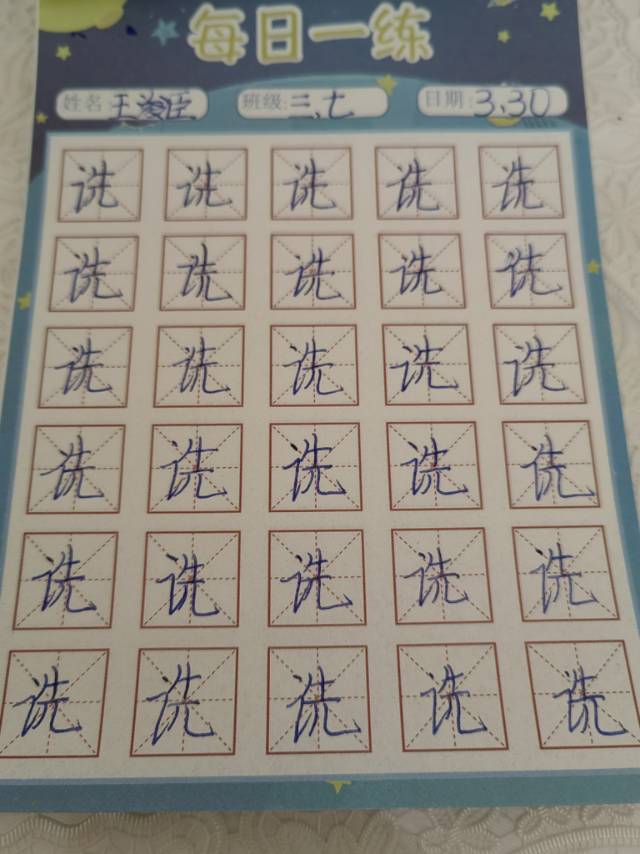 每日一练
姓名:王 臣 班级:三、七 日期:3.30
诜 诜 诜 诜 诜
诜 诜 诜 诜 诜
诜 诜 诜 诜 诜
诜 诜 诜 诜 诜
诜 诜 诜 诜 诜
诜 诜 诜 诜 诜